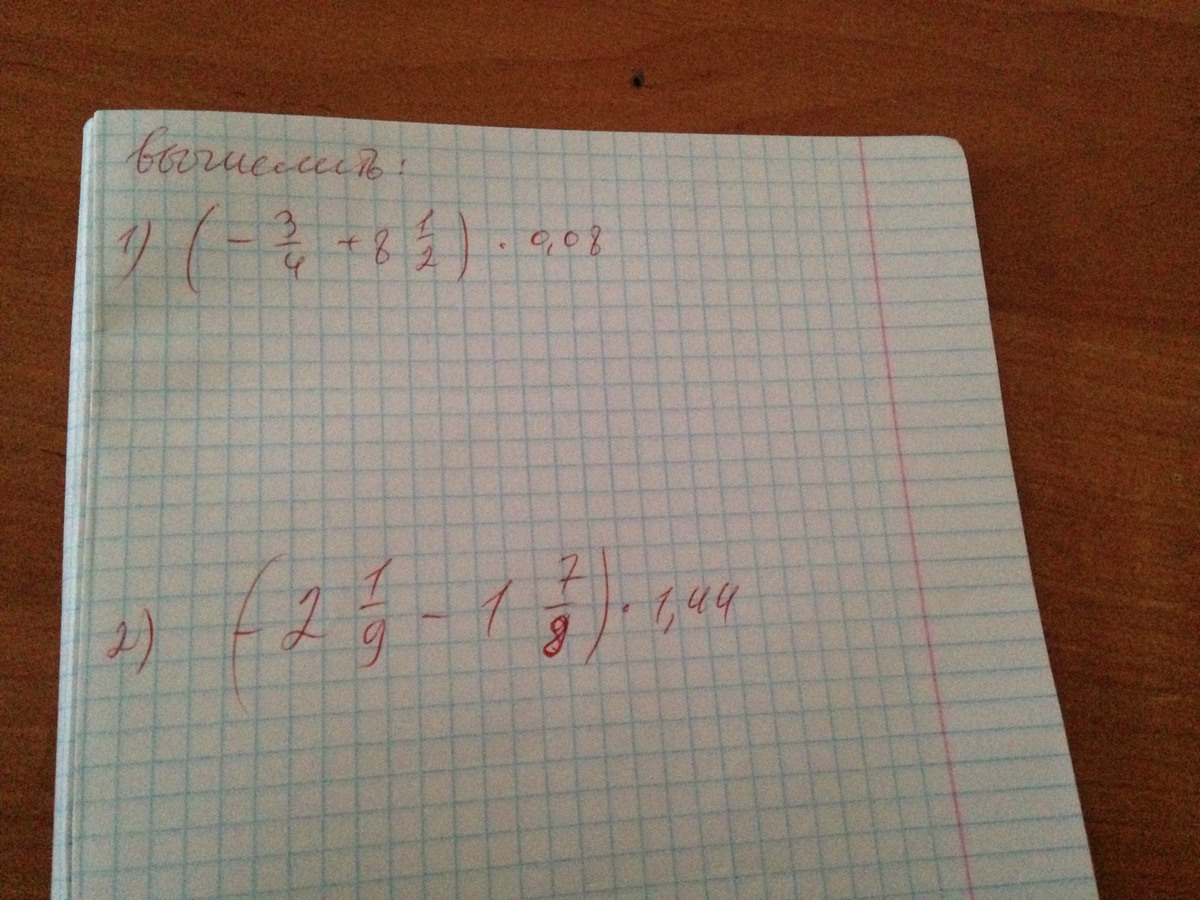 Вычислить:
1) (- 3/4 + 8 1/2) · 0,08
2) (- 2 1/9 - 1 7/8) · 1,44